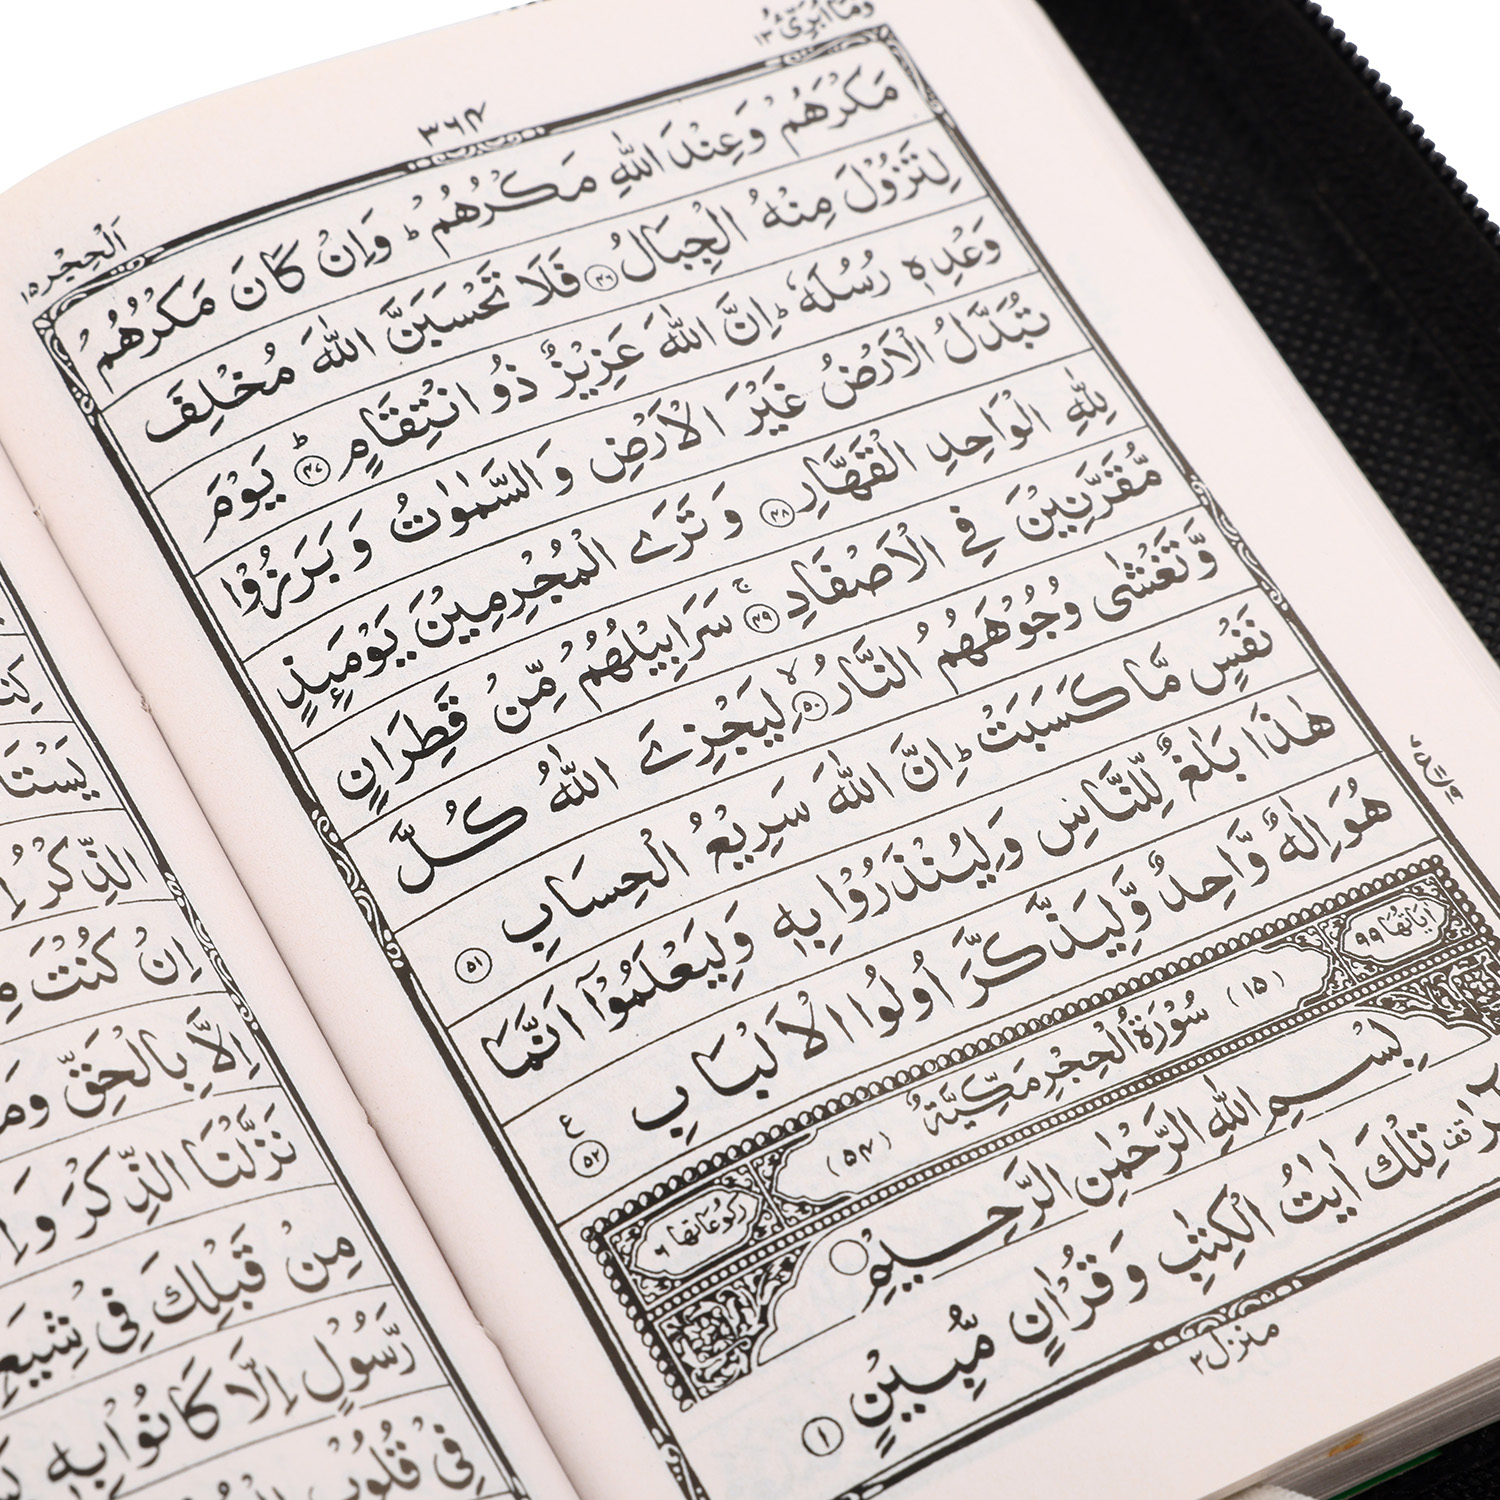 وما ابرئ ١٣
٣٦٤
الحجر ١٥
مَكْرَهُمْ وَعِنْدَ اللّٰهِ مَكْرُهُمْ ؕ وَاِنْ كَانَ مَكْرُهُمْ
لِتَزُوْلَ مِنْهُ الْجِبَالُ ﴿۴۶﴾ فَلَا تَحْسَبَنَّ اللّٰهَ مُخْلِفَ
وَعْدِهٖ رُسُلَهٗ ؕ اِنَّ اللّٰهَ عَزِيْزٌ ذُو انْتِقَامٍ ؕ﴿۴۷﴾ يَوْمَ
تُبَدَّلُ الْاَرْضُ غَيْرَ الْاَرْضِ وَالسَّمٰوٰتُ وَبَرَزُوْا
لِلّٰهِ الْوَاحِدِ الْقَهَّارِ ﴿۴۸﴾ وَتَرَى الْمُجْرِمِيْنَ يَوْمَئِذٍ
مُّقَرَّنِيْنَ فِي الْاَصْفَادِ ۚ﴿۴۹﴾ سَرَابِيْلُهُمْ مِّنْ قَطِرَانٍ
وَّتَغْشٰى وُجُوْهَهُمُ النَّارُ ۙ﴿۵۰﴾ لِيَجْزِيَ اللّٰهُ كُلَّ
نَفْسٍ مَّا كَسَبَتْ ؕ اِنَّ اللّٰهَ سَرِيْعُ الْحِسَابِ ﴿۵۱﴾
هٰذَا بَلٰغٌ لِّلنَّاسِ وَلِيُنْذَرُوْا بِهٖ وَلِيَعْلَمُوْٓا اَنَّمَا
هُوَ اِلٰهٌ وَّاحِدٌ وَّلِيَذَّكَّرَ اُولُوا الْاَلْبَابِ ﴿۵۲﴾ ع
اٰيَاتُهَا ٩٩ (١٥) سُوْرَةُ الْحِجْرِ مَكِّيَّةٌ (٥٤) رُكُوْعَاتُهَا ٦
بِسْمِ اللّٰهِ الرَّحْمٰنِ الرَّحِيْمِ
قف تِلْكَ اٰيٰتُ الْكِتٰبِ وَقُرْاٰنٍ مُّبِيْنٍ ﴿۱﴾
منزل ٣
الذِّكْرُ
اِنْ كُنْتَ
اِلَّا بِالْحَقِّ
نَزَّلْنَا الذِّكْرَ وَاِ
مِنْ قَبْلِكَ فِيْ شِيَعِ
رَّسُوْلٍ اِلَّا كَانُوْا بِهٖ
فِيْ قُلُوْبِ